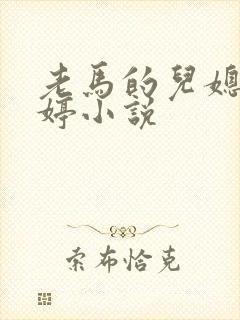 老馬的兒媳
婷小說
索布恰克